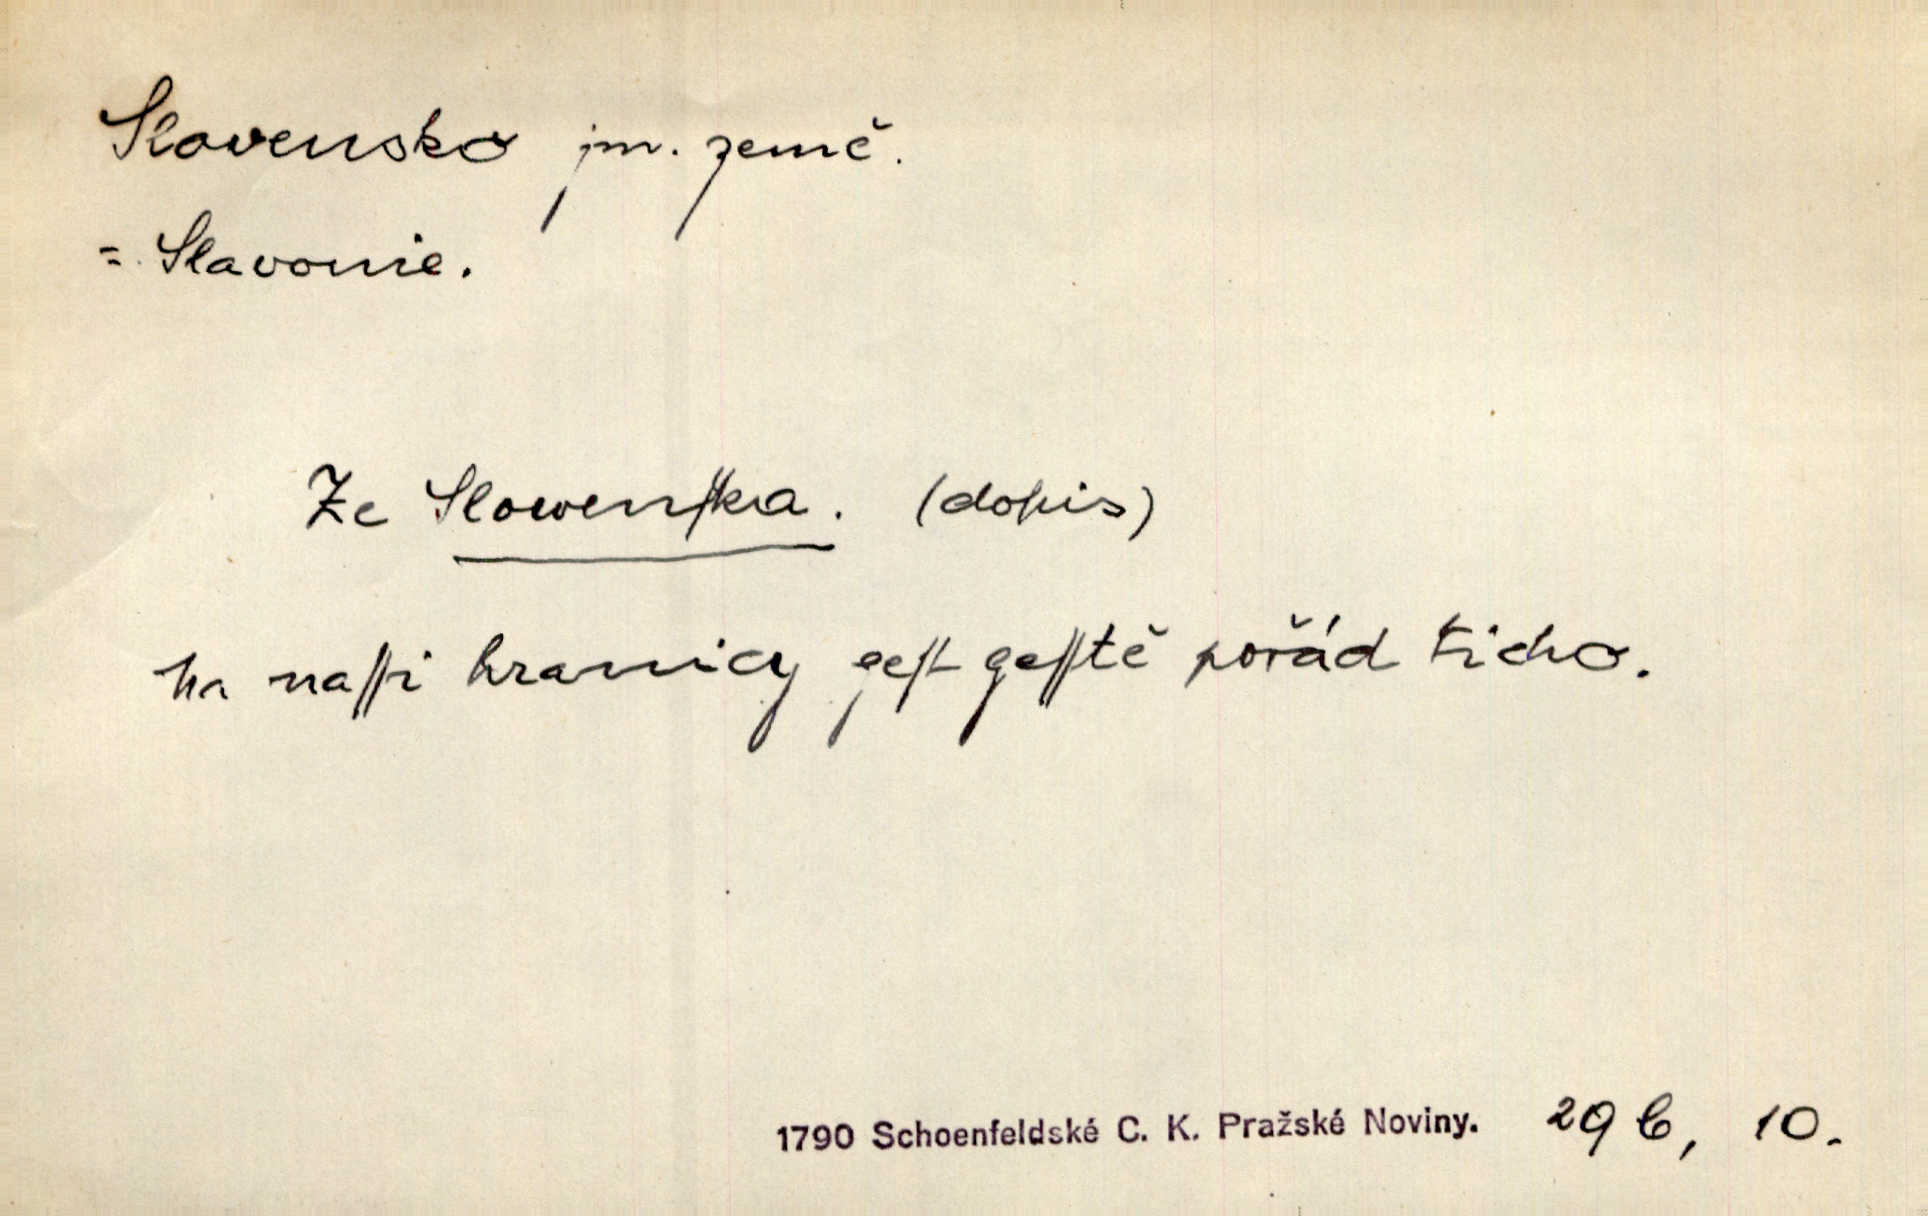 Slovensko jm. země.
= Slavonie.
Ze Slowenſka. (dopis)
na naſſi hranicy geſt geſſtě pořád ticho.
1790 Schoenfeldské C. K. Pražské Noviny. 29 b, 10.